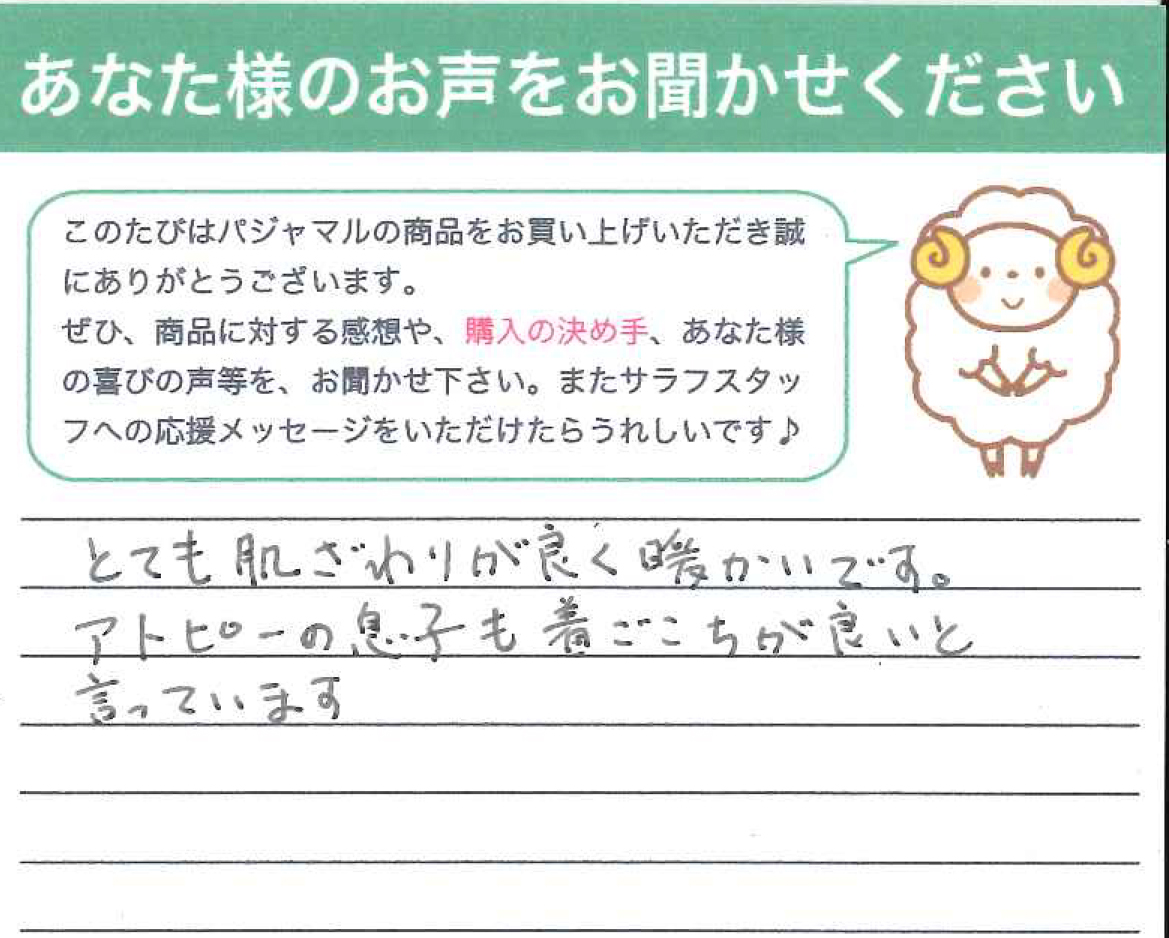 あなた様のお声をお聞かせください
このたびはパジャマルの商品をお買い上げいただき誠
にありがとうございます。
ぜひ、商品に対する感想や、購入の決め手、あなた様
の喜びの声等を、お聞かせ下さい。またサラフスタッ
フへの応援メッセージをいただけたらうれしいです♪
とても肌ざわりが良く暖かいです。
アトピーの息子も着ごこちが良いと
言っています